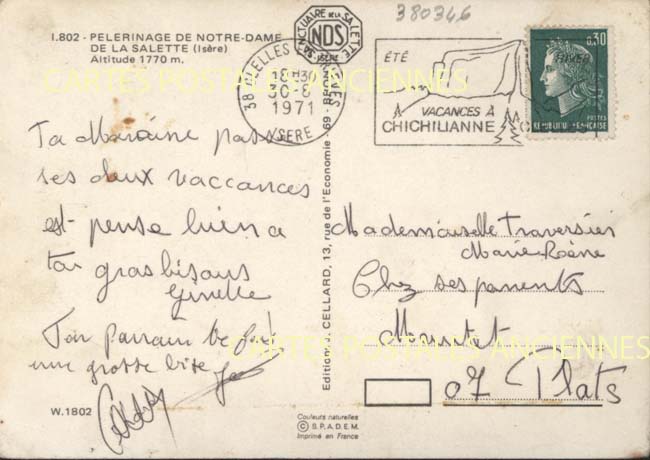 I.802 - PELERINAGE DE NOTRE-DAME
DE LA SALETTE (Isère)
Altitude 1770 m.
SANCTUAIRE DE LA SALETTE
NDS
ISERE
380346
18H30
30-8
1971
ISERE
ÉTÉ
HIVER
VACANCES À
CHICHILIANNE
0,30
POSTES
REPUBLIQUE FRANÇAISE
CARTES POSTALES ANCIENNES
Ta Maraine passe
ses deux vaccances
est pense bien a
toi gros bisous
Ginette
Ton parrain te fait
une grosse bise
W.1802
Editions J. CELLARD, 13, rue de l'Economie - 69 - BRON
Mademoiselle Traversier
Marie-Roene
Chez ses parents
07 Plats
CARTES POSTALES ANCIENNES
Couleurs naturelles
© S.P.A.D.E.M.
Imprimé en France